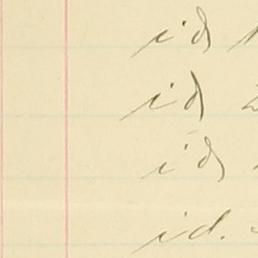 id
id
id
id.